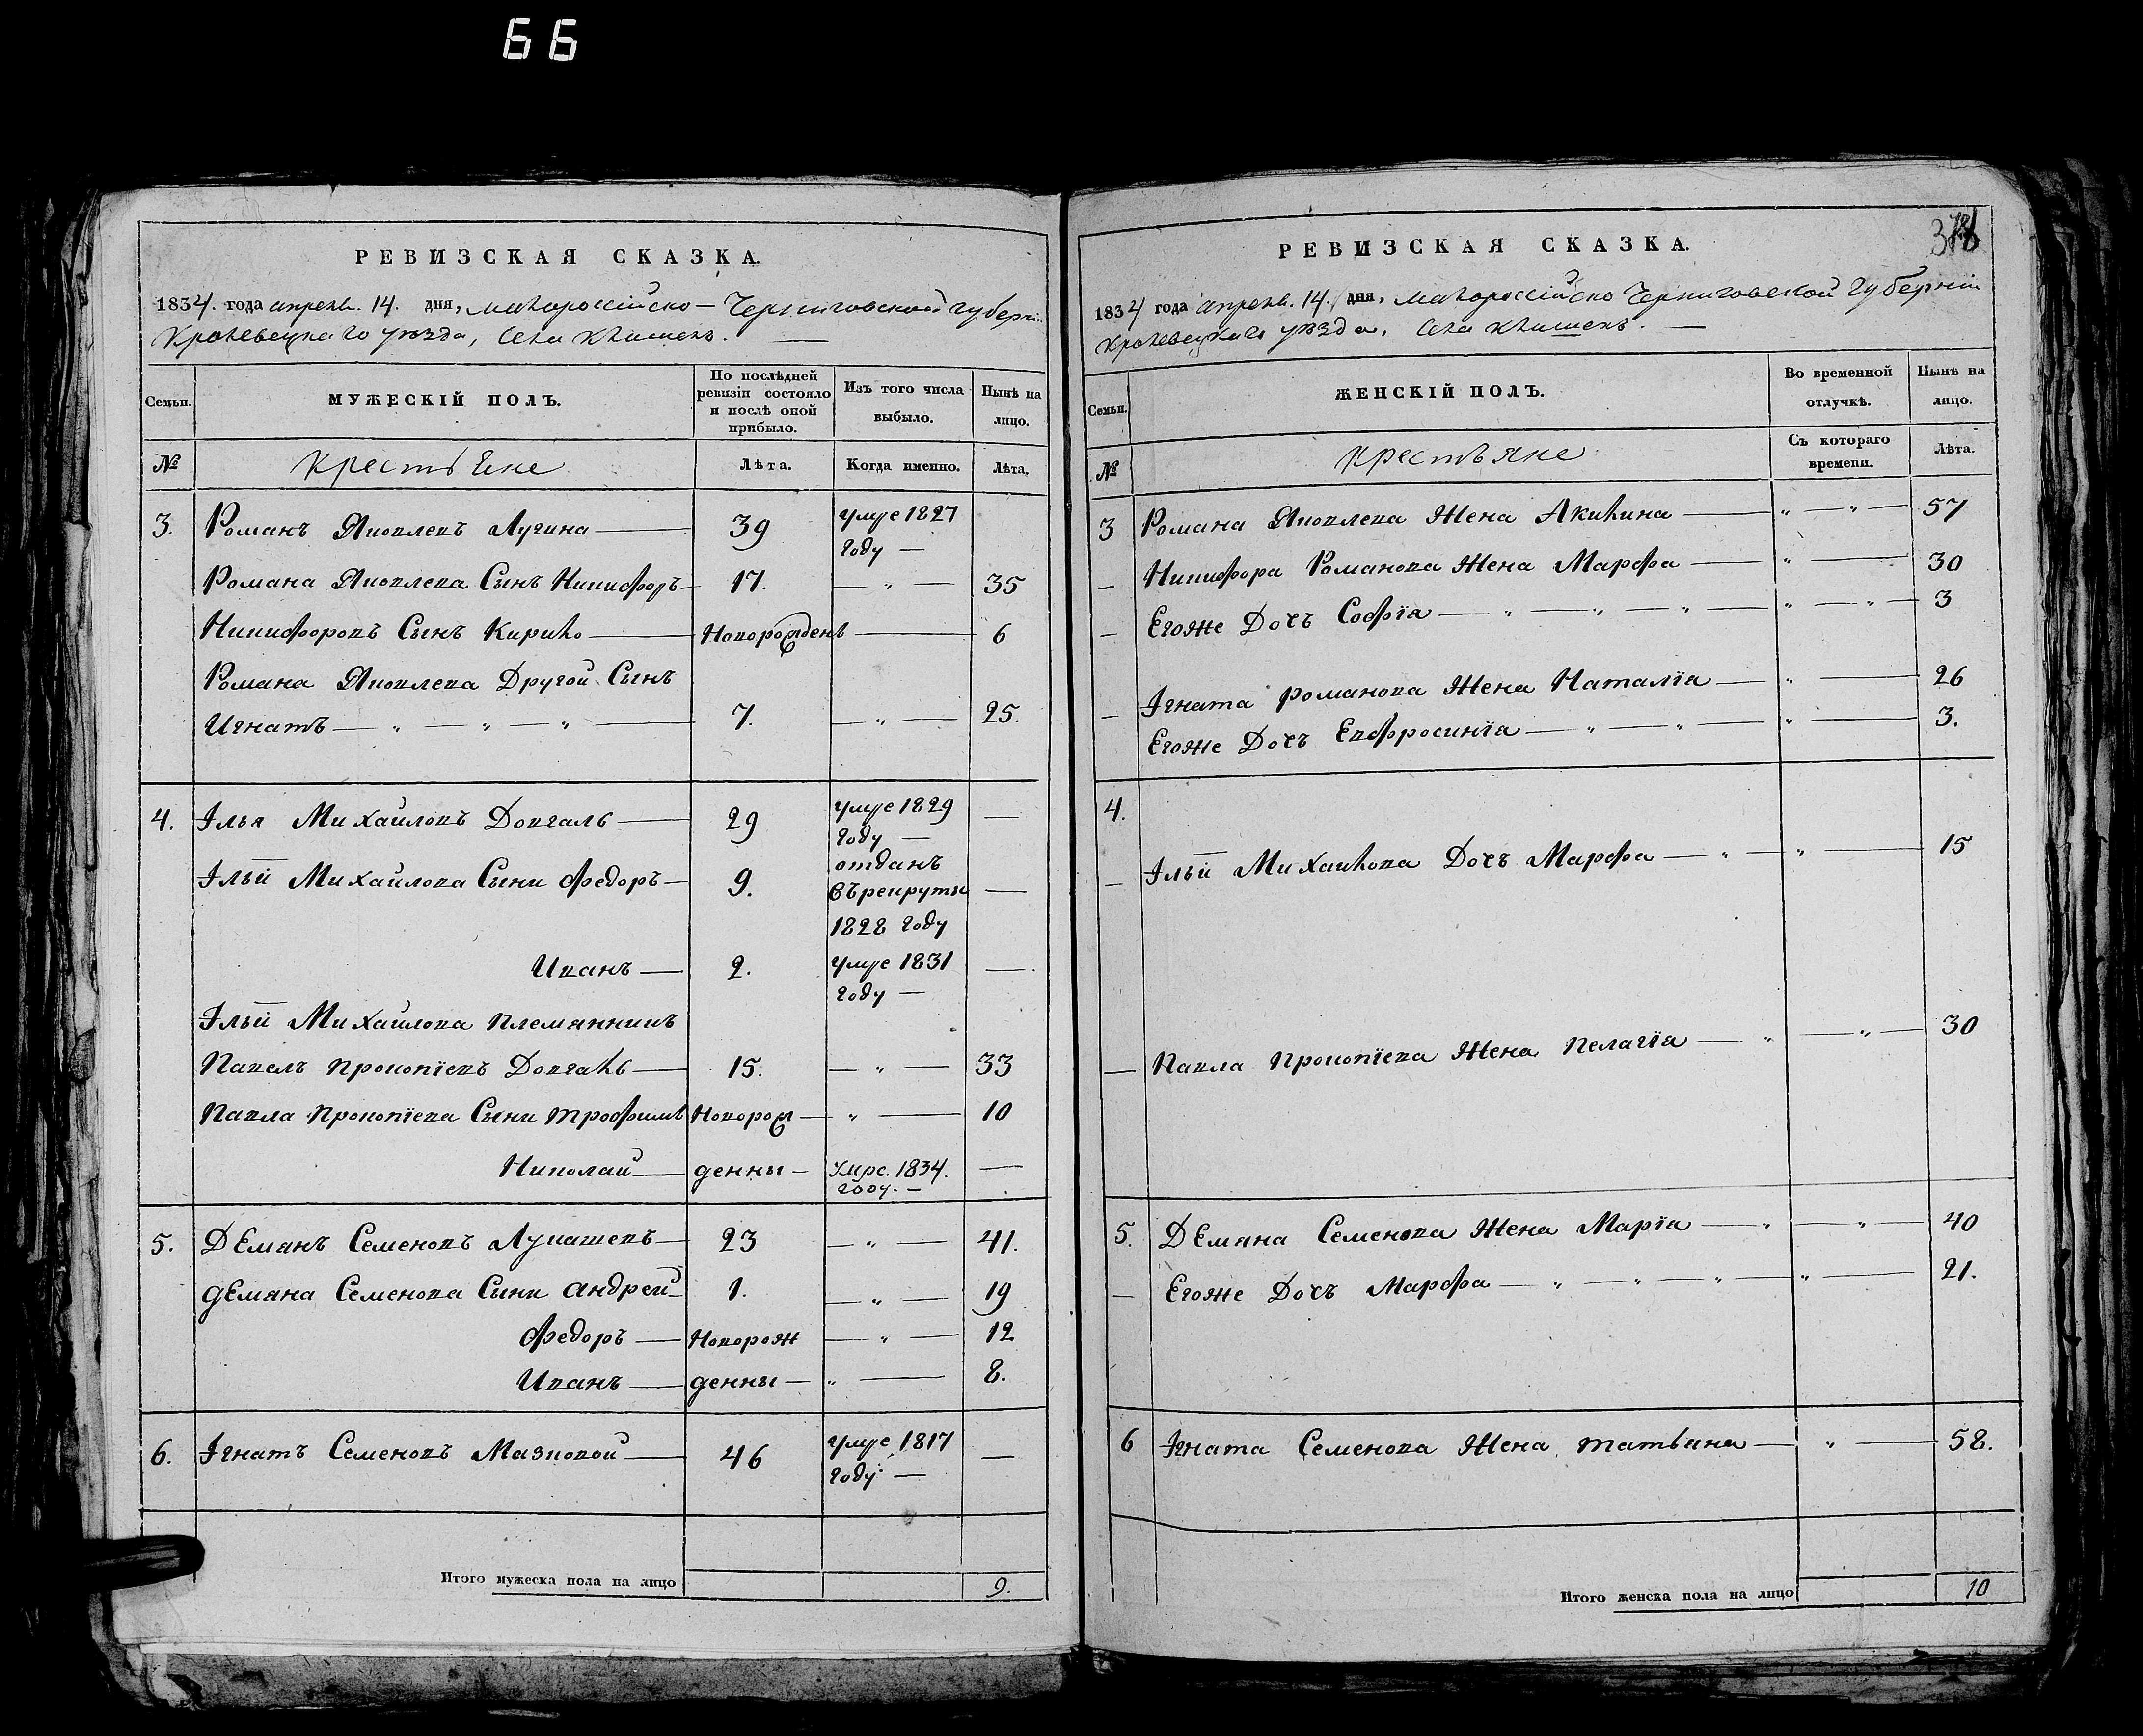 66
РЕВИЗСКАЯ СКАЗКА.
1834. года апреля. 14. дня, малороссійско – Черниговской губерніи
Кролевецкаго уѣзда, села Клишекъ.
Семьи.
МУЖЕСКІЙ ПОЛЪ.
По послѣдней ревизіи состояло и послѣ оной прибыло.
Изъ того числа выбыло.
Нынѣ на лицо.
№ Крестьяне Лѣта. Когда именно. Лѣта.
3. Романъ Яковлевъ Лугина — 39 умре 1827
году —
Романа Яковлева Сынъ Никифоръ — 17. — „ — 35
Никифоровъ Сынъ Кирило — Новорожденъ — 6
Романа Яковлева Другой Сынъ
Игнатъ — „ — „ — „ — 7. — „ — 25.
4. Ілья Михайловъ Довгаль — 29 умре 1829 —
году —
Ільи Михайлова Сыни Федоръ — 9. отданъ
въ рекруты —
1828 году
Иванъ — 2. умре 1831 —
году —
Ільи Михайлова племянникъ
Павелъ Прокопіевъ Довгаль — 15. — „ — 33
Павла Прокопіева Сыни Трофимъ Новорож — „ — 10
Николай — денны — Умре. 1834. —
году. —
5. Демянъ Семеновъ Лукашевъ — 23 — „ — 41.
Демяна Семенова Сыни Андрей — 1. — „ — 19
Федоръ — Новорож — „ — 12
Иванъ — денны — „ — 8.
6. Ігнатъ Семеновъ Мазковой — 46 умре 1817 —
году. —
Итого мужеска пола на лицо 9.
РЕВИЗСКАЯ СКАЗКА.
1834 года апреля. 14. дня, малороссійско Черниговской губерніи
Кролевецкаго уѣзда, села Клишекъ. —
Семьи.
ЖЕНСКІЙ ПОЛЪ.
Во временной отлучкѣ.
Нынѣ на лицо.
№ Крестьяне Съ котораго времени. Лѣта.
3 Романа Яковлева Жена Акилина — „ — „ — 57
— Никифора Романова Жена Марфа — „ — 30
— Егоже Дочъ Софія — „ — „ — „ — „ — „ — 3
— Ігната Романова Жена Наталія — „ — 26
Егоже Дочъ Евфросинія — „ — „ — „ — 3.
4.
— Ільи Михайлова Дочъ Марфа — „ — „ — 15
— Павла Прокопіева Жена Пелагія — „ — „ — 30
5. Демяна Семенова Жена Марія — „ — „ — 40
— Егоже Дочъ Марфа — „ — „ — „ — „ — 21.
6 Ігната Семенова Жена Татьяна — „ — 58.
Итого женска пола на лицо 10